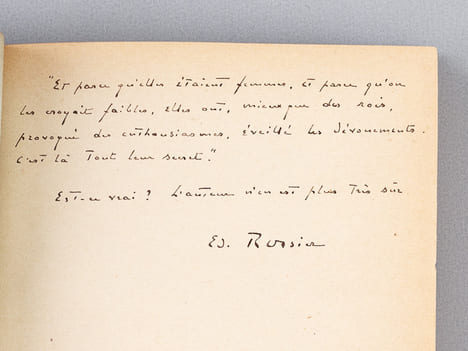 "Et parce qu'elles étaient femmes, et parce qu'on
les croyait faibles, elles ont, mieux que des rois,
provoqué des enthousiasmes, éveillé les dévouements.
C'est là tout leur secret."
Est-ce vrai ? L'auteur n'en est plus très sûr
Ed. Rossier